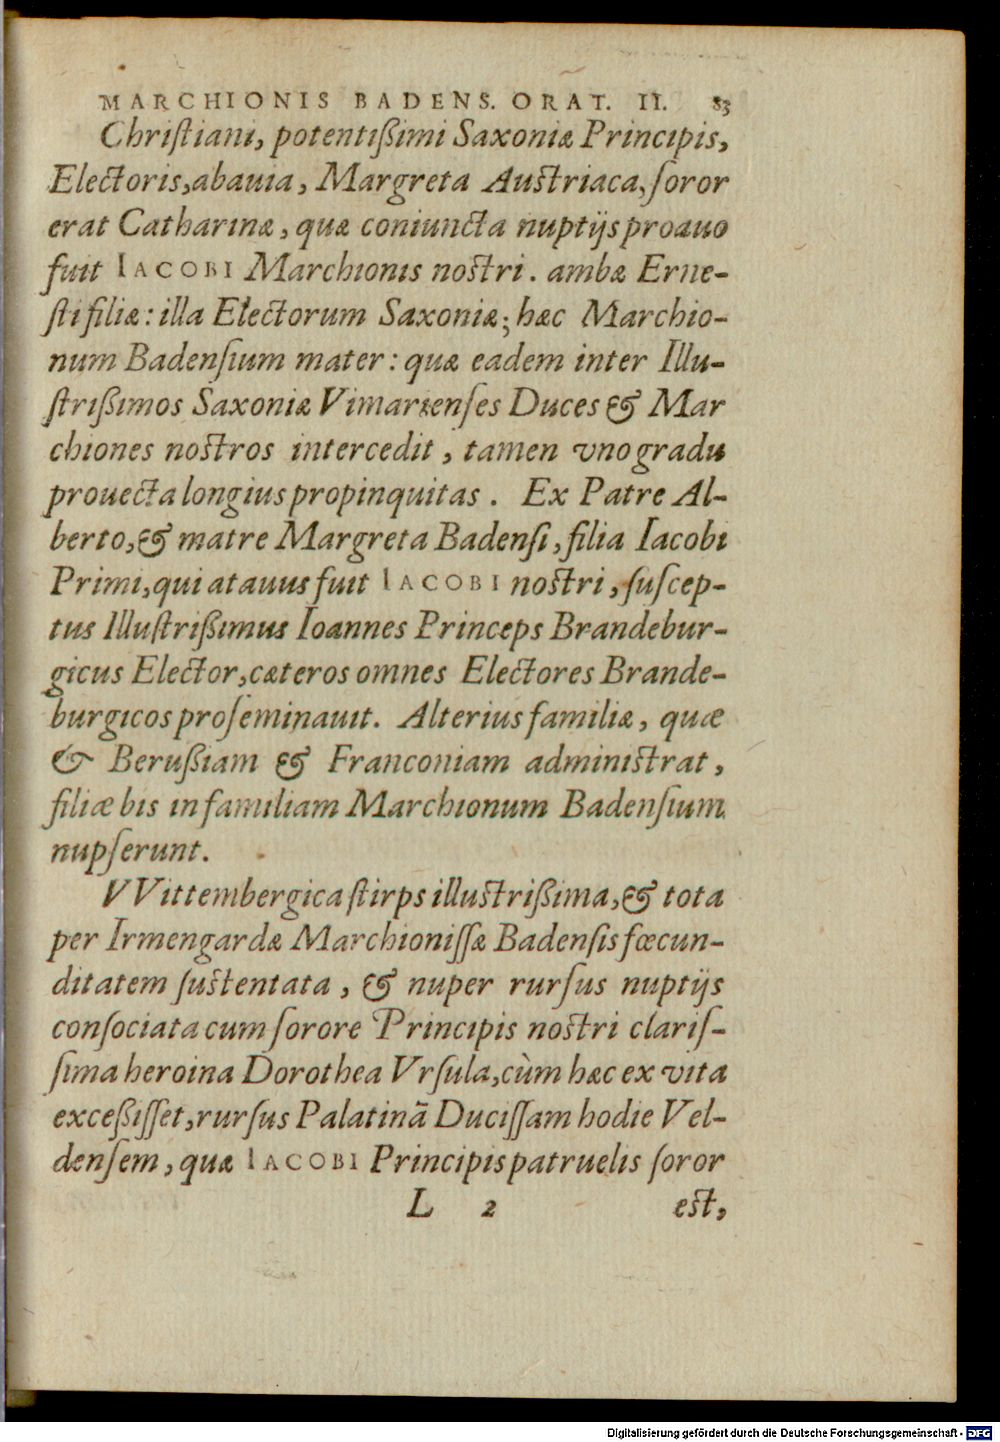 MARCHIONIS BADENS. ORAT. II. 83
Chriſtiani, potentißimi Saxoniæ Principis,
Electoris, abauia, Margreta Auſtriaca, ſoror
erat Catharinæ, quæ coniuncta nuptijs proauo
fuit IACOBI Marchionis noſtri. ambæ Erne-
ſti filiæ: illa Electorum Saxoniæ; hæc Marchio-
num Badenſium mater: quæ eadem inter Illu-
ſtrißimos Saxoniæ Vimarienſes Duces & Mar
chiones noſtros intercedit, tamen vno gradu
prouecta longius propinquitas. Ex Patre Al-
berto, & matre Margreta Badenſi, filia Iacobi
Primi, qui atauus fuit IACOBI noſtri, ſuſcep-
tus Illuſtrißimus Ioannes Princeps Brandebur-
gicus Elector, cæteros omnes Electores Brande-
burgicos proſeminauit. Alterius familiæ, quæ
& Berußiam & Franconiam adminiſtrat,
filiæ bis in familiam Marchionum Badenſium
nupſerunt.
VVittembergica ſtirps illuſtrißima, & tota
per Irmengardæ Marchioniſſæ Badenſis fœcun-
ditatem ſuſtentata, & nuper rurſus nuptijs
conſociata cum ſorore Principis noſtri clariſ-
ſima heroina Dorothea Vrſula, cùm hæc ex vita
exceßiſſet, rurſus Palatinã Duciſſam hodie Vel-
denſem, quæ IACOBI Principis patruelis ſoror
L 2 eſt,
Digitalisierung gefördert durch die Deutsche Forschungsgemeinschaft - DFG